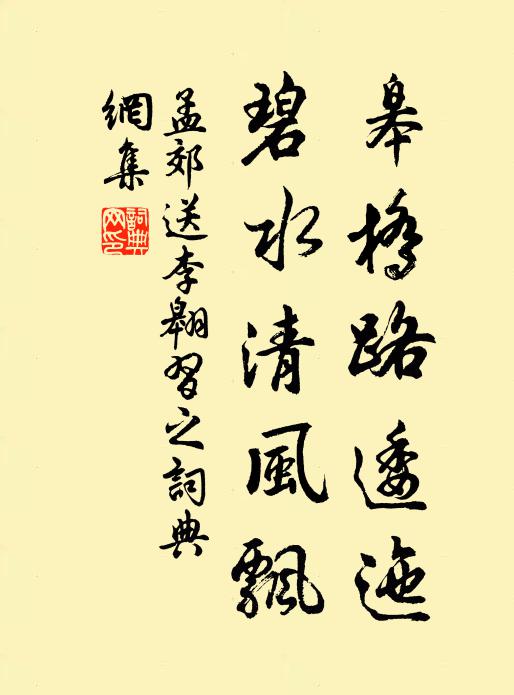 皋橋路逶迤
碧水清風飄
孟郊送李翱習之詞典
網集
詞典
网印